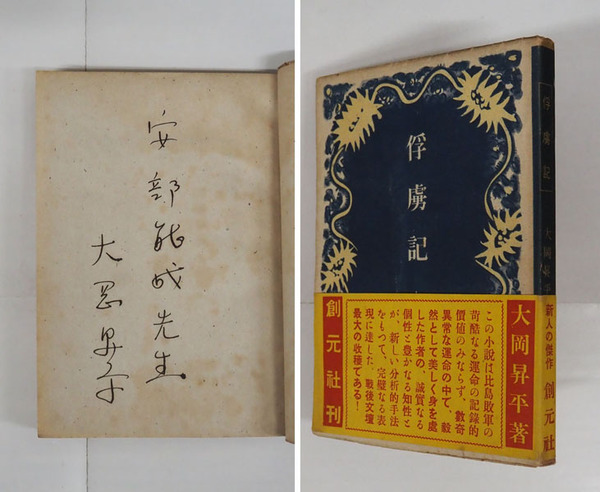 安部能成先生
大岡昇平
俘虜記
大岡昇平著
この小説は比島敗軍の
苛酷なる運命の記録的
価値のみならず、数奇
異常な運命の中で、毅
然として美しく身を處
した作者の、誠實なる
個性と豊かなる知性と
が、新しい分析的手法
をもつて、完璧なる表
現に達した、戰後文壇
最大の收穫である!
創元社刊
俘虜記
大岡昇平
新人の傑作 創元社